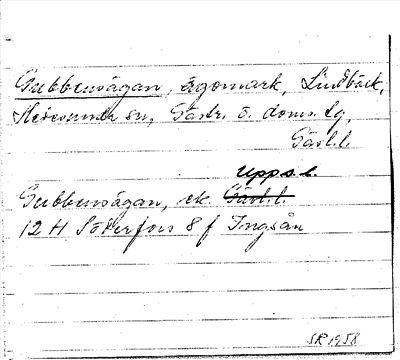 Gubbensägan, ägomark, Lindbäck,
Hedesunda sn, Gästr. ö. doms. lg,
Gävl.l.
Upps.l.
Gubbensägan, ek. Gävl.l.
12 H Söderfors 8 f Ingsån
SR 1958